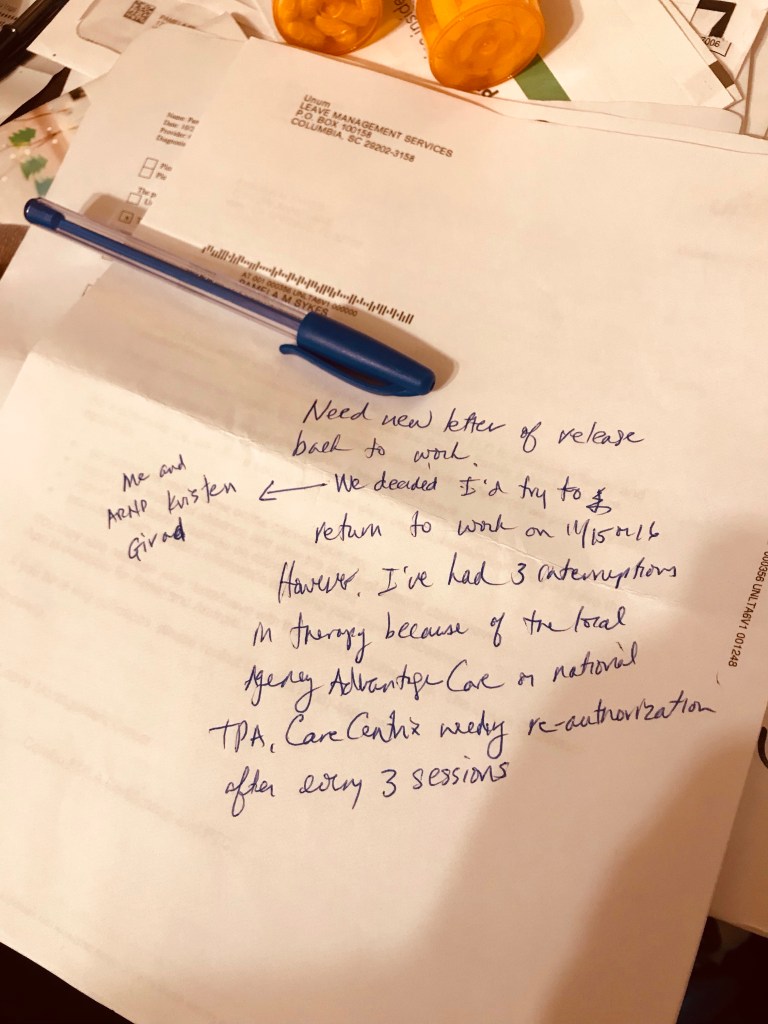 7
006
Unum
LEAVE MANAGEMENT SERVICES
P.O. BOX 100158
COLUMBIA, SC 29202-3158
Date: 10/2
Diagnosis
The p
AT 001 000356 UNLTA6V1 000000
PAMELA M SYKES
000356 UNLTA6V1 001248
Need new letter of release
back to work.
Me and
ARNP Kristen
Girad
← We decided I'd try to
return to work on 11/15 or 16
However, I've had 3 interruptions
in therapy because of the local
Agency Advantage Care or national
TPA, CareCentrix needing re-authorization
after every 3 sessions